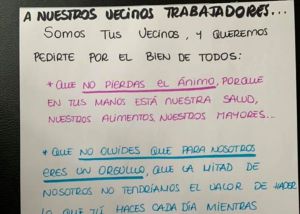 A NUESTROS VECINOS TRABAJADORES...
SOMOS TUS VECINOS, Y QUEREMOS
PEDIRTE POR EL BIEN DE TODOS:
* QUE NO PIERDAS EL ÁNIMO, PORQUE
EN TUS MANOS ESTÁ NUESTRA SALUD,
NUESTROS ALIMENTOS, NUESTROS MAYORES...
* QUE NO OLVIDES QUE PARA NOSOTROS
ERES UN ORGULLO, QUE LA MITAD DE
NOSOTROS NO TENDRÍAMOS EL VALOR DE HACER
LO QUE TÚ HACES CADA DÍA MIENTRAS